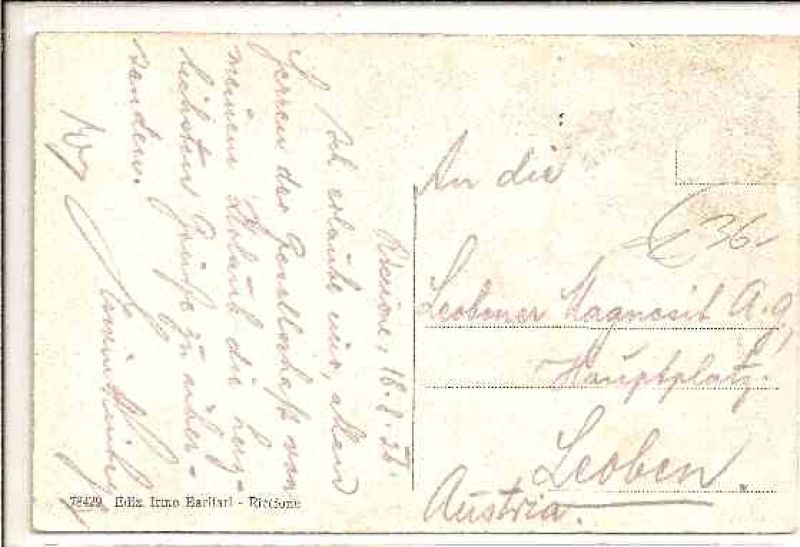 Riccione, 18.8.
Ich erlaube mir, allen
Herren der Gesellschaft von
meinem Urlaub die herz-
lichsten Grüße zu über-
senden.
An die
36.
Leobener Magnesit A.G.
Hauptplatz.
Leoben
Austria.
78429 Ediz. Irmo - Riccione